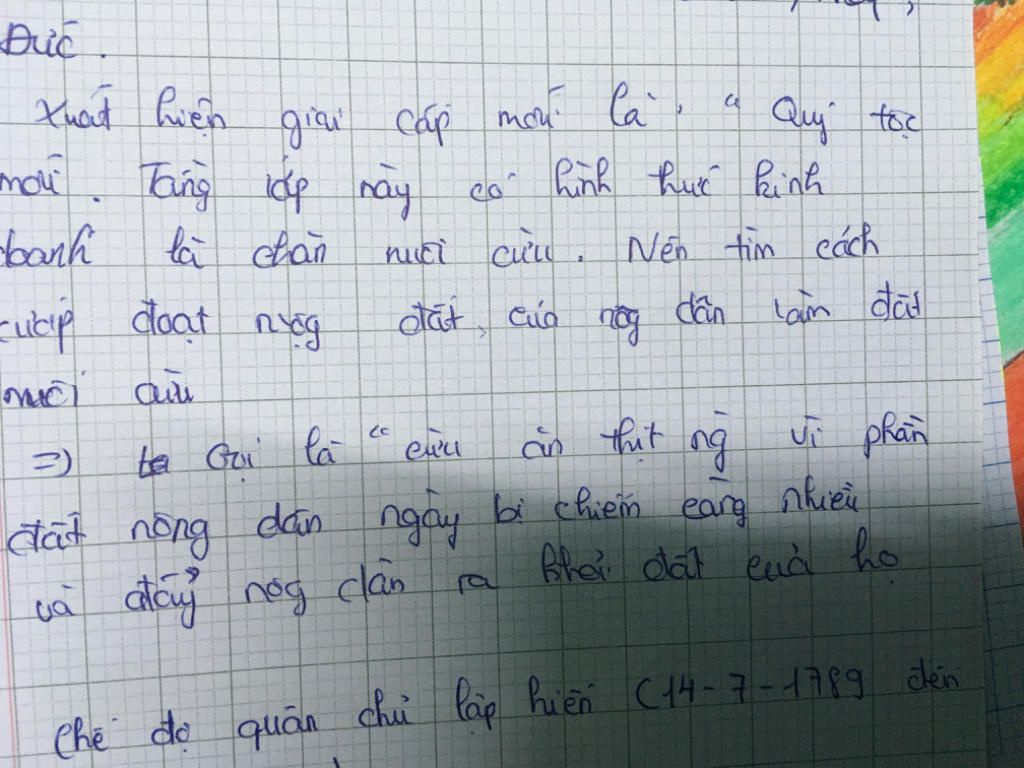 Đức.
Xuất hiện giai cấp mới là, " Quý tộc
mới. Tầng lớp này có hình thức kinh
doanh là chăn nuôi cừu. Nên tìm cách
cướp đoạt ruộg đất, của nôg dân làm đất
nuôi cừu
=) Gọi là " cừu ăn thịt ng vì phần
đất nông dân ngày bị chiếm càng nhiều
và đẩy nôg dân ra khỏi đất của họ
Chế độ quân chủ lập hiến (14-7-1789 đến